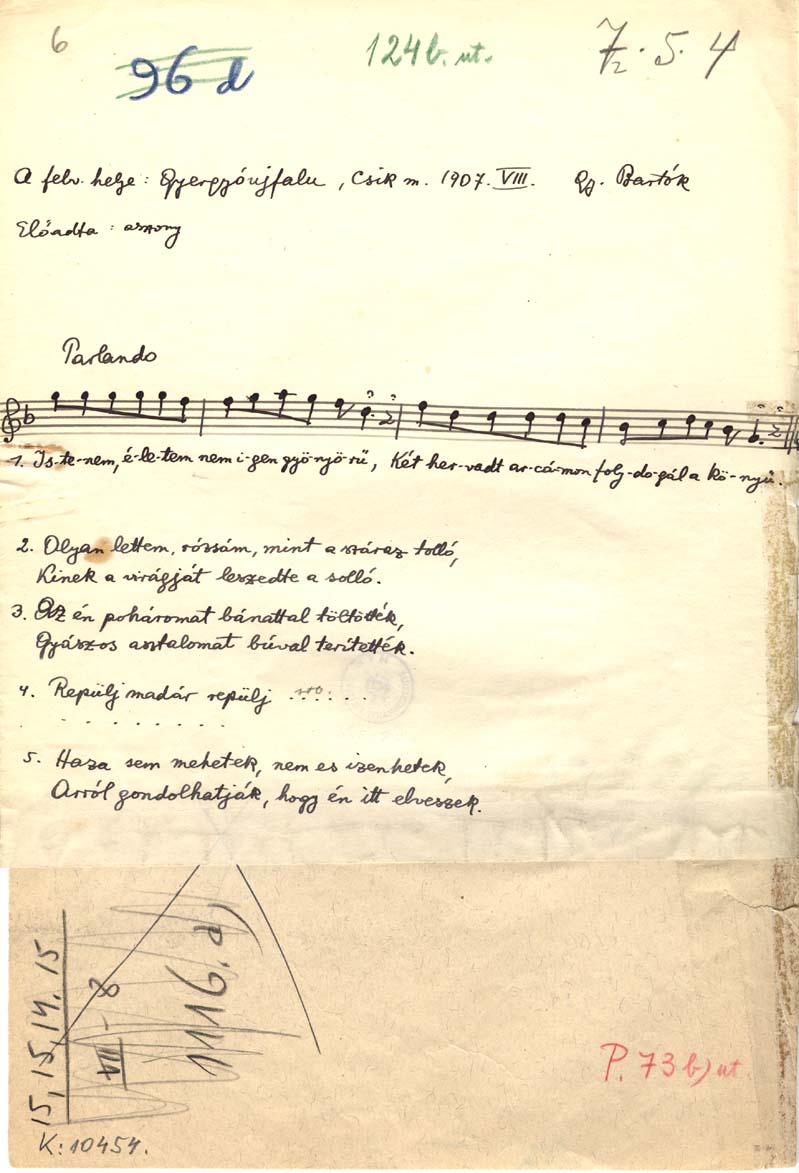 6
96 d
124 b. ut.
7/2 . 5 . 4
A felv. helye: Gyergyóujfalu, Csik m. 1907. VIII. Gy. Bartók
Előadta: asszony
Parlando
1. Is-te-nem, é-le-tem nem i-gen gyö-nyö-rű, Két her-vadt ar-cá-mon foly-do-gál a kö-nyű.
2. Olyan lettem, rózsám, mint a száraz tolló,
Kinek a virágját leszedte a solló.
3. Az én poháromat bánattal töltötték,
Gyászos asztalomat búval terítették.
4. Repülj madár repülj . . . . . .
. . . . . . . . .
5. Haza sem mehetek, nem es izenhetek,
Arról gondolhatják, hogy én itt elveszek.
15, 15, 14, 15
VII - 8
K: 10454.
P. 73 b) ut.